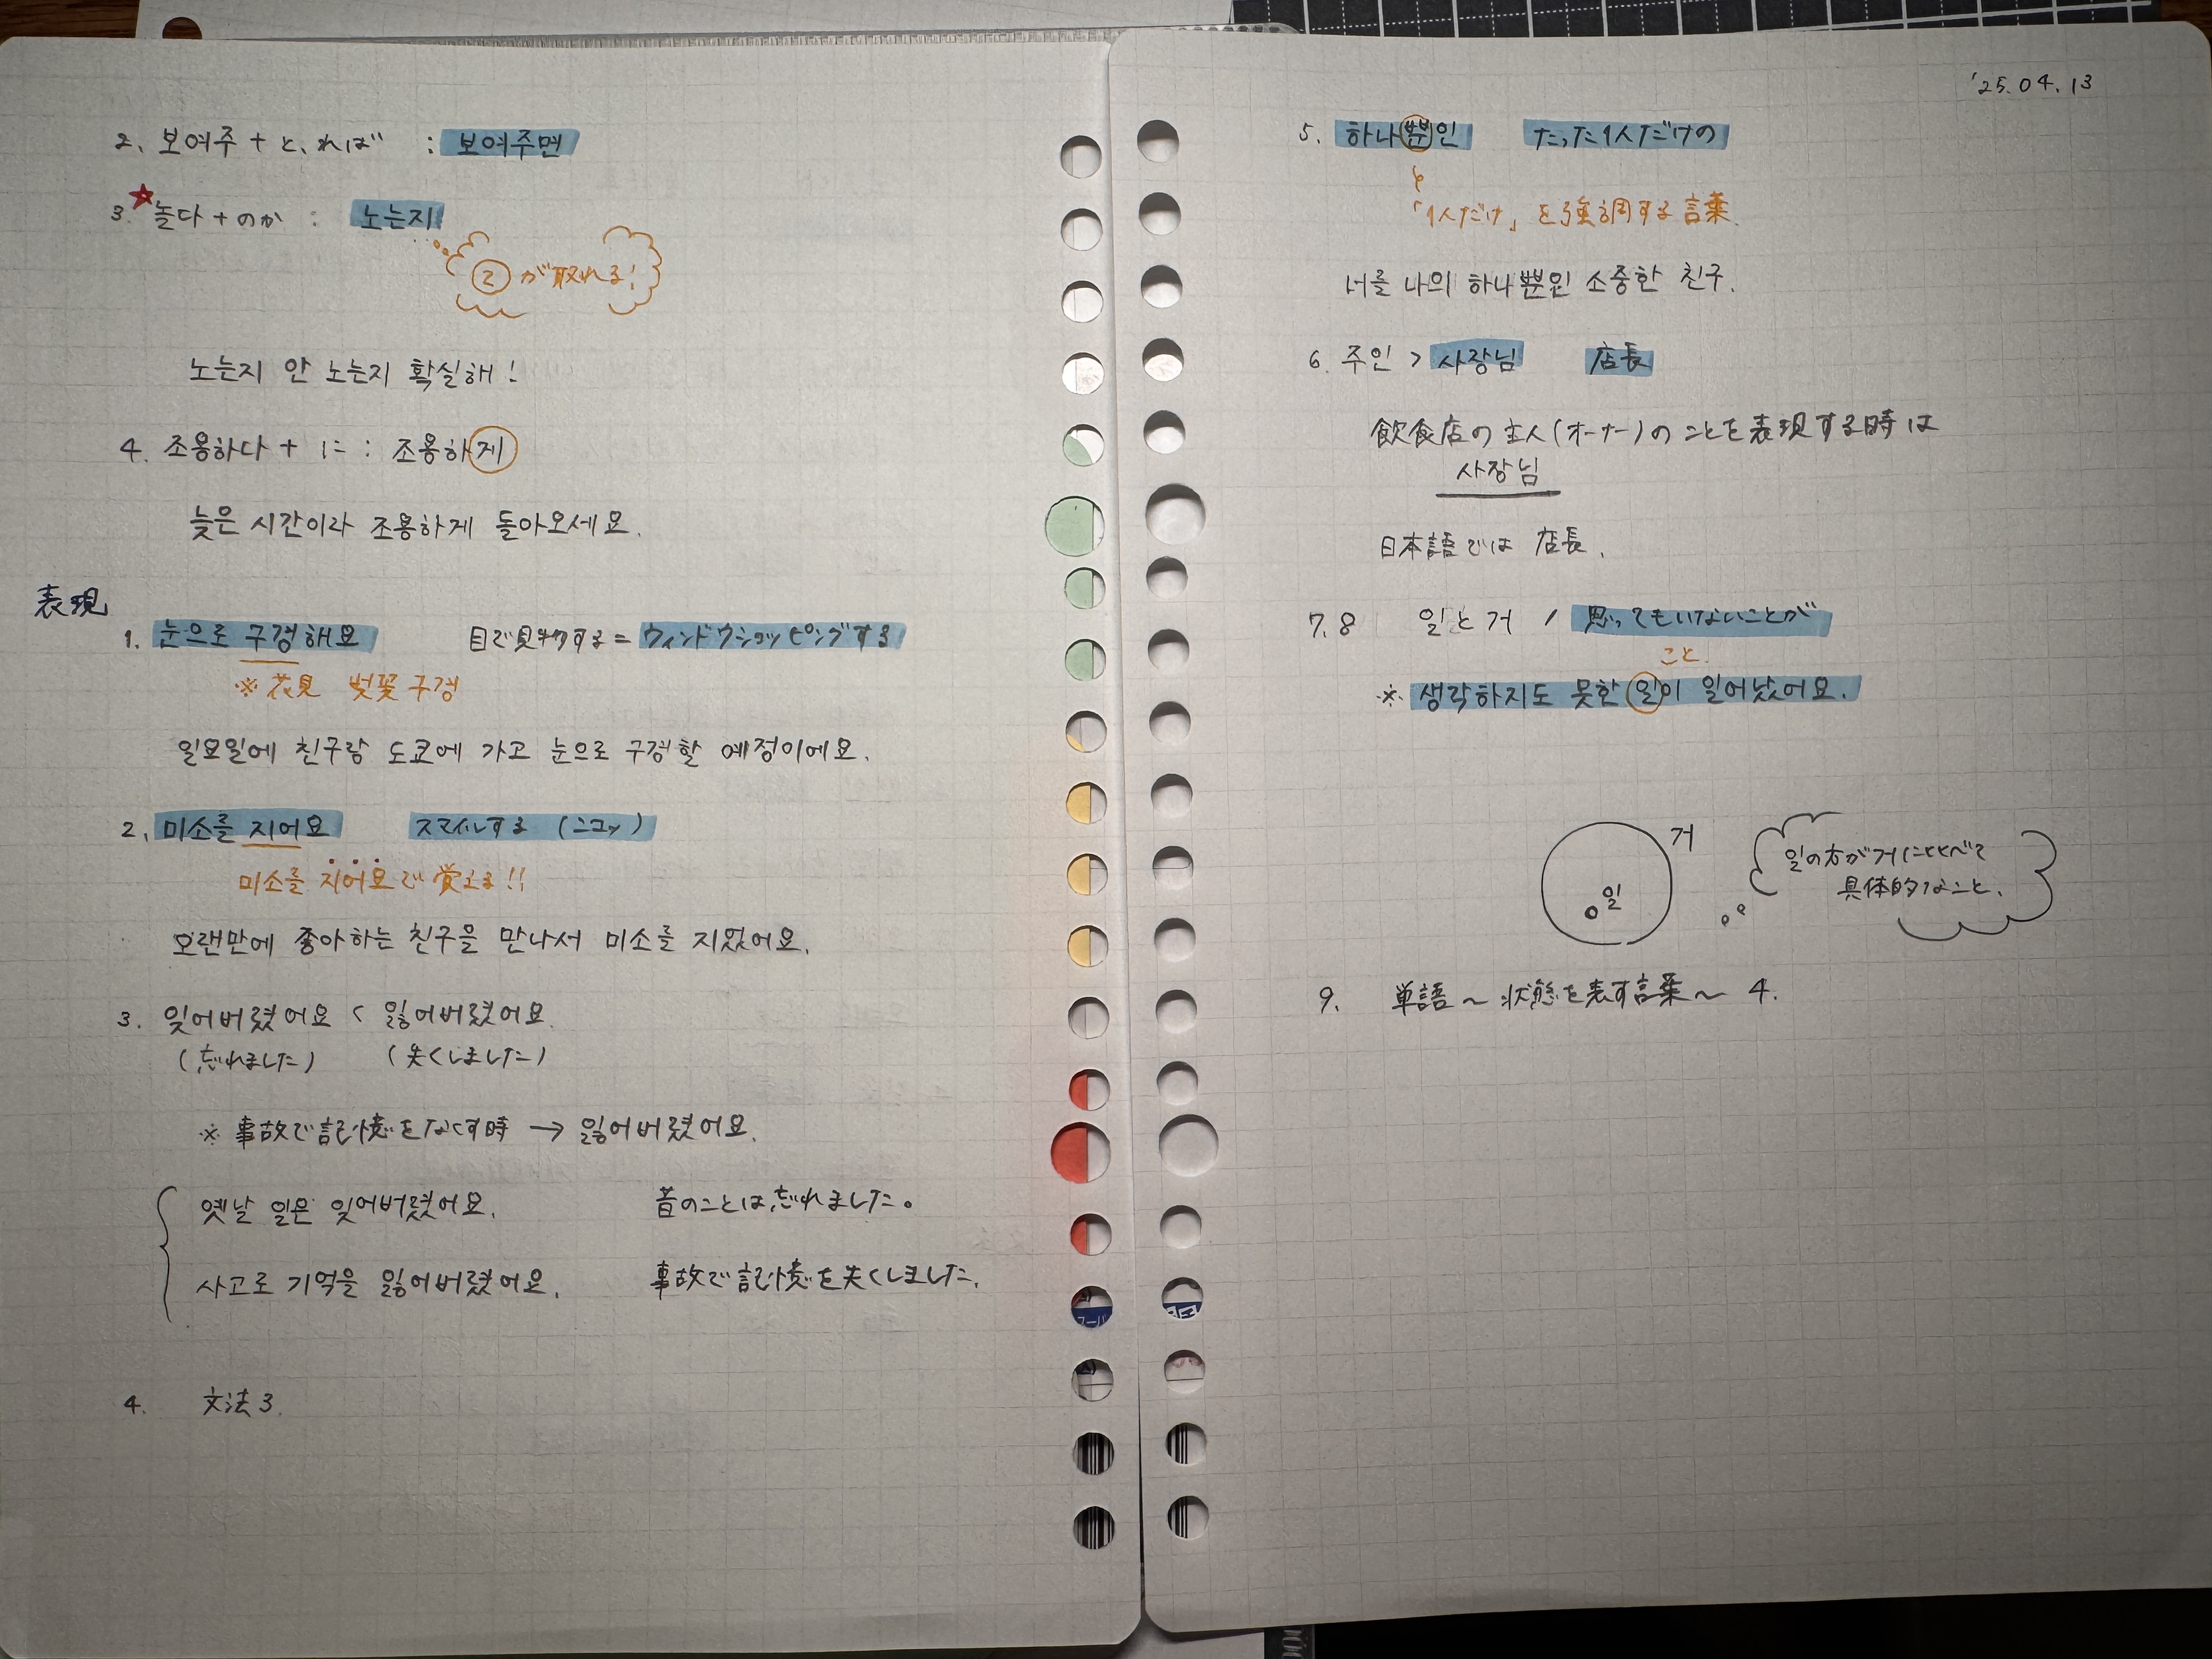 2. 보여주 + と、れば : 보여주면
3. 놀다 + のか : 노는지
ㄹ が取れる!
노는지 안 노는지 확실해!
4. 조용하다 + に : 조용하게
늦은 시간이라 조용하게 돌아오세요.
表現
1. 눈으로 구경해요 目で見物する = ウィンドウショッピングする
※ 花見 벚꽃 구경
일요일에 친구랑 도쿄에 가고 눈으로 구경할 예정이에요.
2. 미소를 지어요 スマイルする (ニコッ)
미소를 지어요で覚える!!
오랜만에 좋아하는 친구을 만나서 미소를 지었어요.
3. 잊어버렸어요 < 잃어버렸어요.
(忘れました) (失くしました)
※ 事故で記憶をなくす時 → 잃어버렸어요.
옛날 일은 잊어버렸어요. 昔のことは忘れました。
사고로 기억을 잃어버렸어요. 事故で記憶を失くしました.
4. 文法3.
'25.04.13
5. 하나뿐인 たった1人だけの
「1人だけ」を強調する言葉.
너를 나의 하나뿐인 소중한 친구.
6. 주인 > 사장님 店長
飲食店の主人(オーナー)のことを表現する時は
사장님
日本語では 店長.
7.8 일と거 / 思ってもいないことが
こと.
※ 생각하지도 못한 일이 일어났어요.
거
일
일の方が거にくらべて
具体的なこと.
9. 単語 ~ 状態を表す言葉 ~ 4.